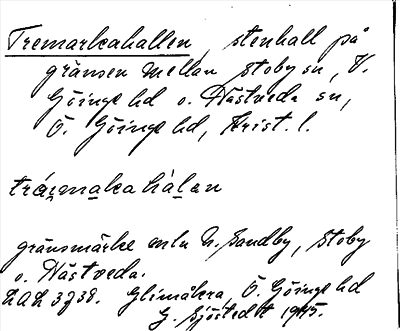 Tremarkahallen, stenhall på
gränsen mellan Stoby sn, V.
Göinge hd o. Nästveda sn,
Ö. Göinge hd, Krist. l.
gränsmärke mln N. Sandby, Stoby
o. Nästveda.
LAL 3938. Glimåkra Ö. Göinge hd
G. Sjöstedt 1945.